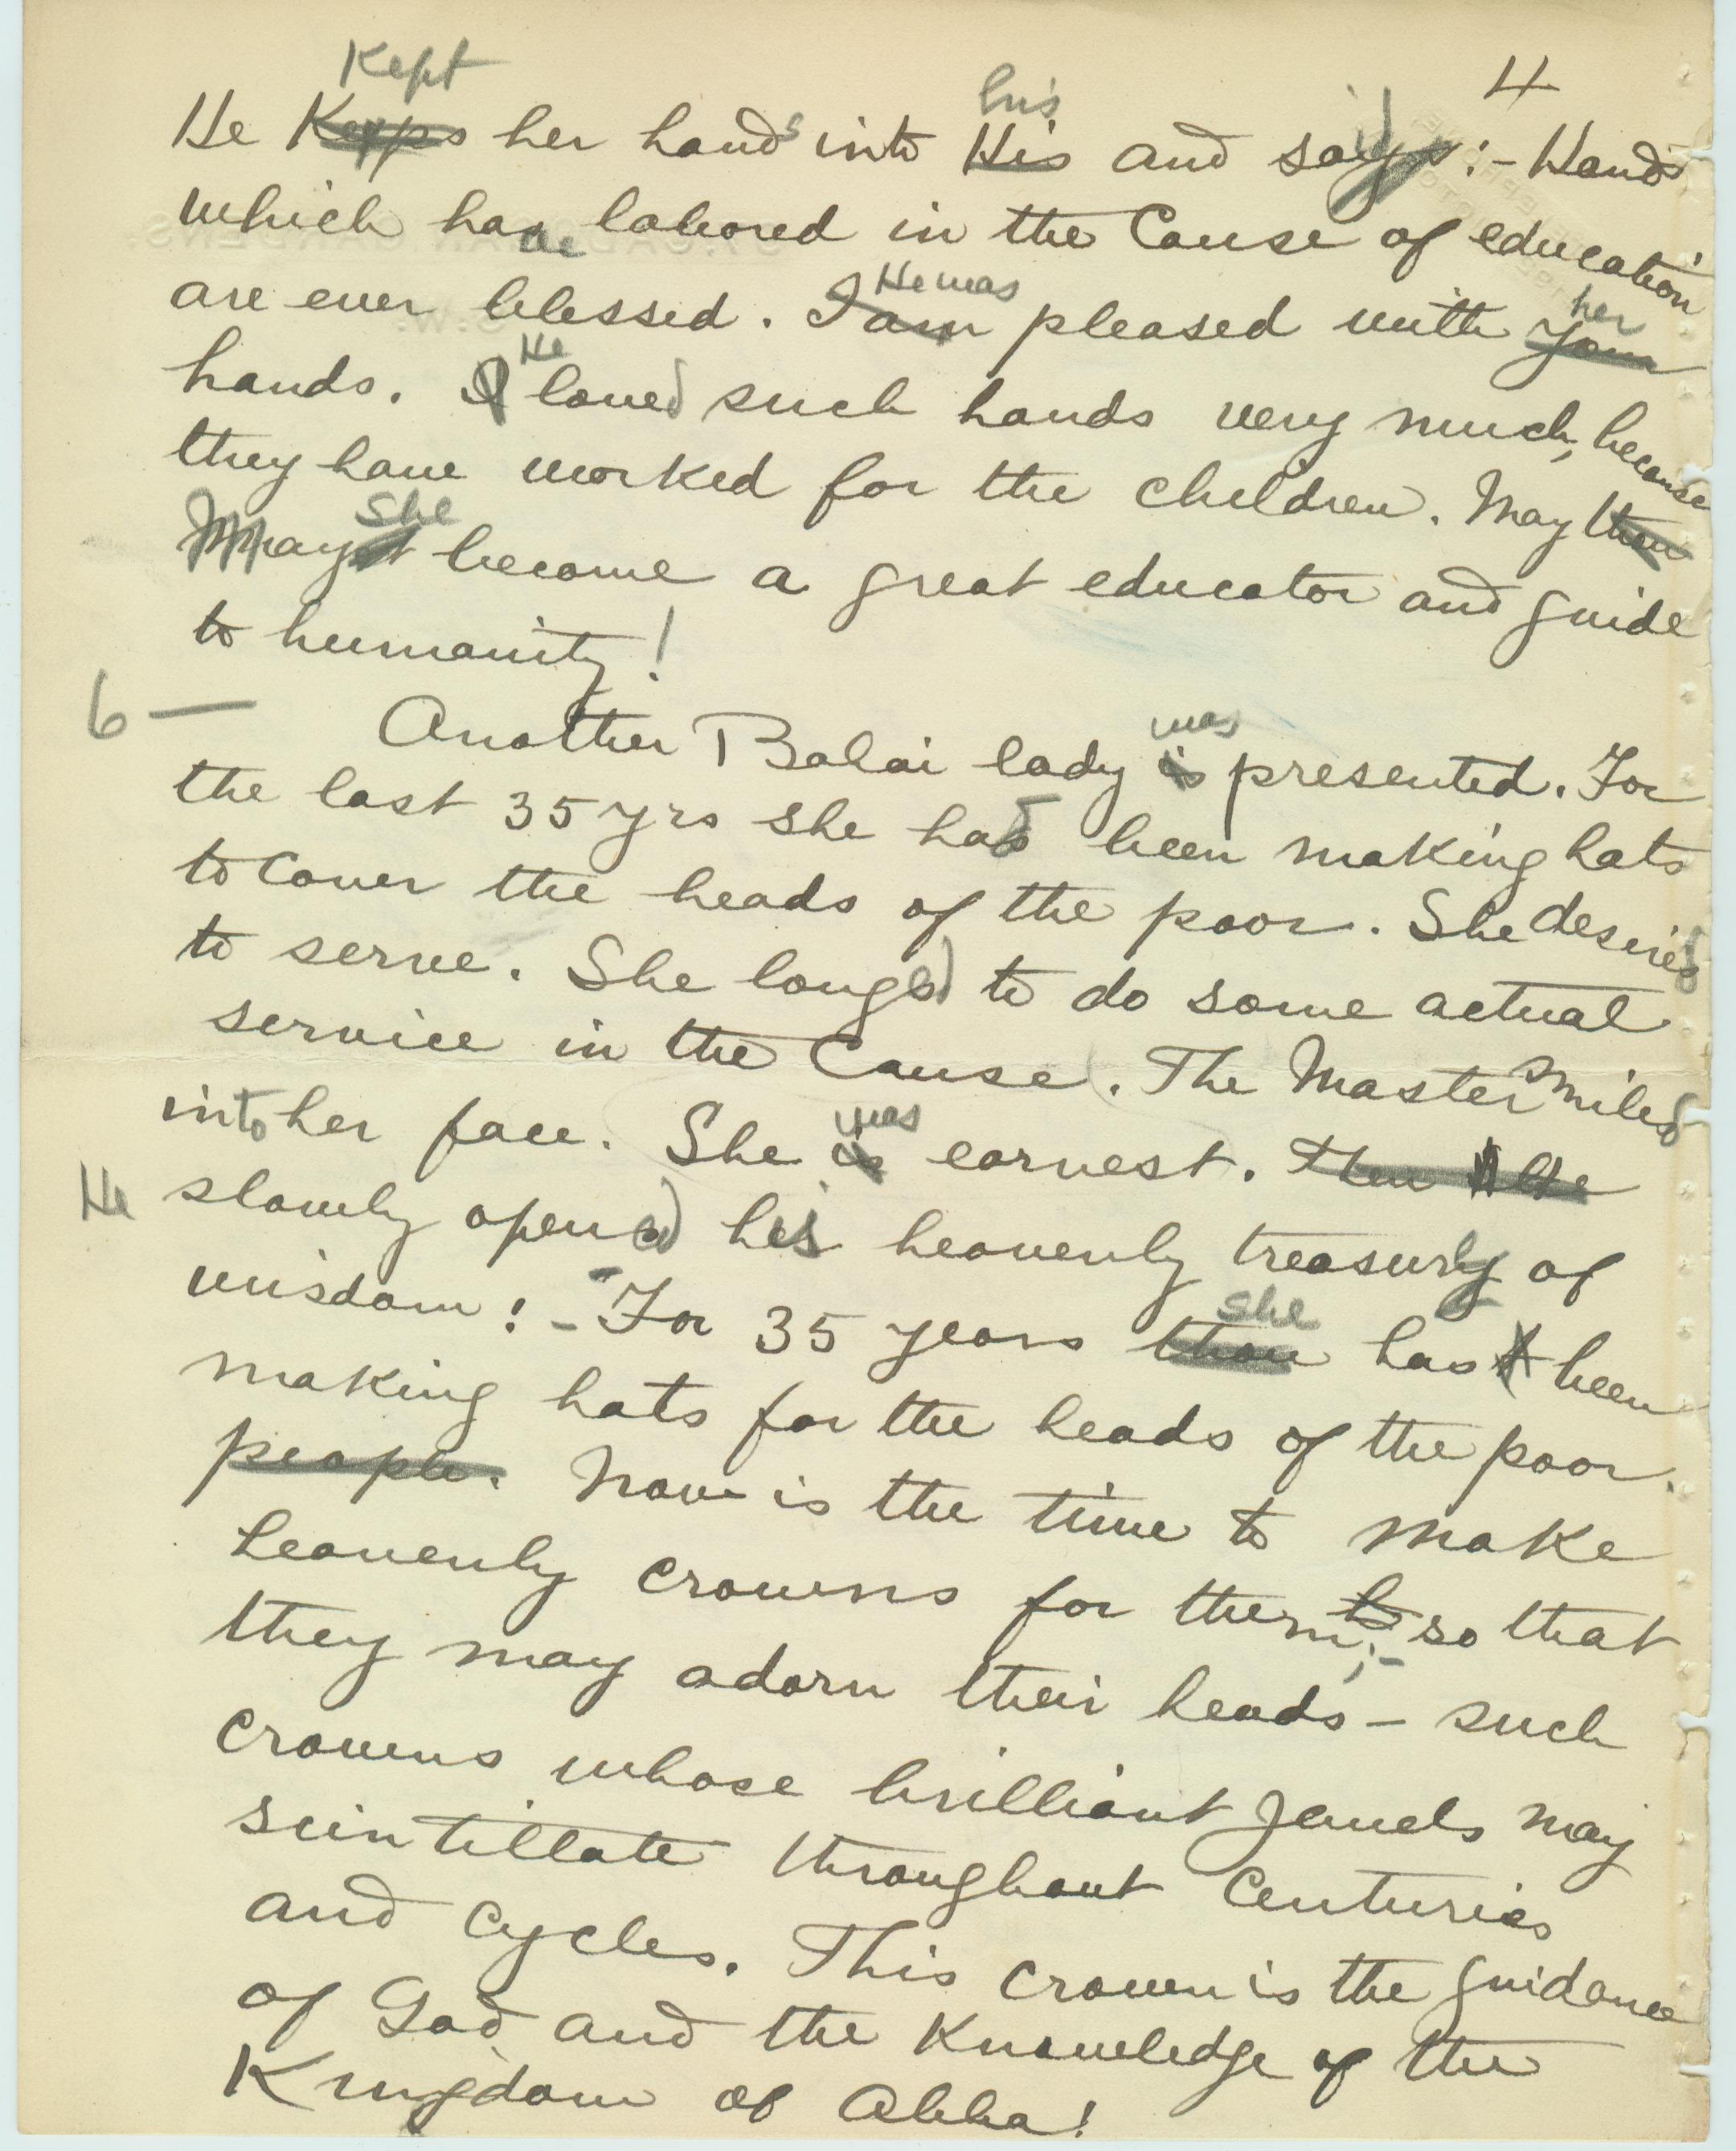 4
Kept his
He Keeps her hands into His and says :- Hands
which have labored in the Cause of education
He was her
are ever blessed. I am pleased with your
He
hands. I loved such hands very much, because
they have worked for the children. May thou
She
Mayst become a great educator and guide
to humanity!
6 — was
Another Bahai lady is presented. For
the last 35 yrs she had been making hats
to cover the heads of the poor. She desired
to serve. She longed to do some actual
service in the Cause. The Master smiled
was
into her face. She is earnest. Then He
He slowly opened his heavenly treasury of
she
wisdom! - For 35 years thou hast been
making hats for the heads of the poor.
people. Now is the time to make
heavenly crowns for them;- so that
they may adorn their heads - such
crowns whose brilliant Jewels may
scintillate throughout Centuries
and cycles. This crown is the guidance
of God and the Knowledge of the
Kingdom of Abha!